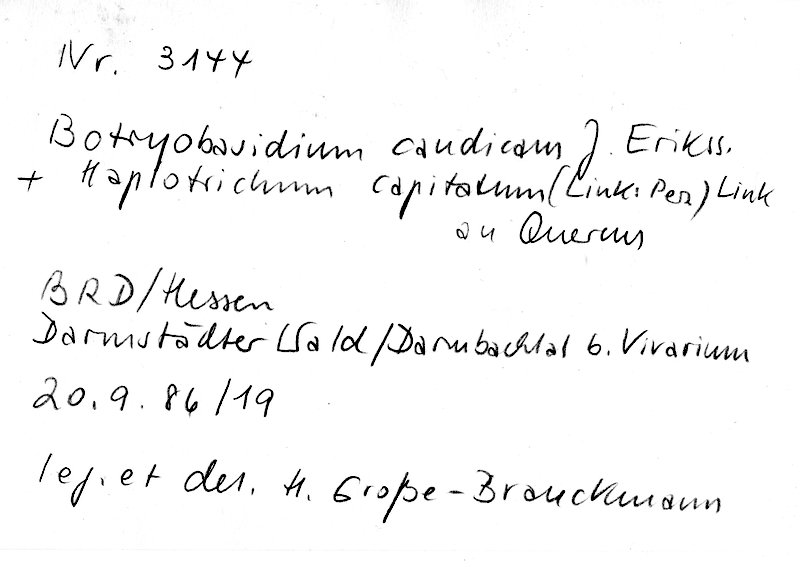 Nr. 3144
Botryobasidium candicans J. Erikss.
+ Haplotrichum capitatum (Link: Pers) Link
an Quercus
BRD/Hessen
Darmstädter Wald/Darmbachtal b. Vivarium
20.9.86/19
leg. et det. H. Große-Brauckmann